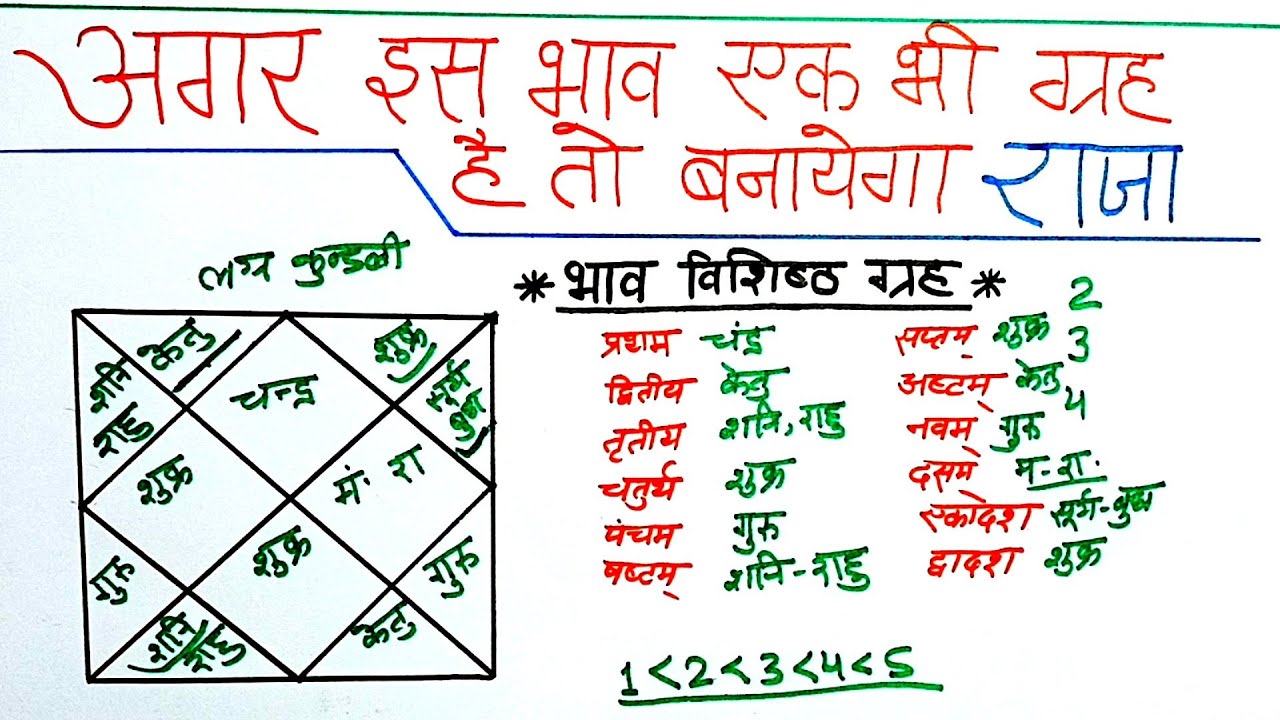 अगर इस भाव एक भी ग्रह
है तो बनायेगा राजा
लग्न कुन्डली
केतु
शनि
राहु
चन्द्र
शुक्र
सूर्य
बुध
शुक्र
मं. रा
गुरु
शुक्र
गुरु
शनि
राहु
केतु
* भाव विशिष्ठ ग्रह *
प्रथम चंद्र
द्वितीय केतु
तृतीय शनि, राहु
चतुर्थ शुक्र
पंचम गुरु
षष्टम् शनि-राहु
सप्तम् शुक्र 2
अष्टम् केतु 3
नवम् गुरु 4
दसम म-रा.
एकोदश सूर्य-बुध
द्वादश शुक्र
1<2<3<4<5